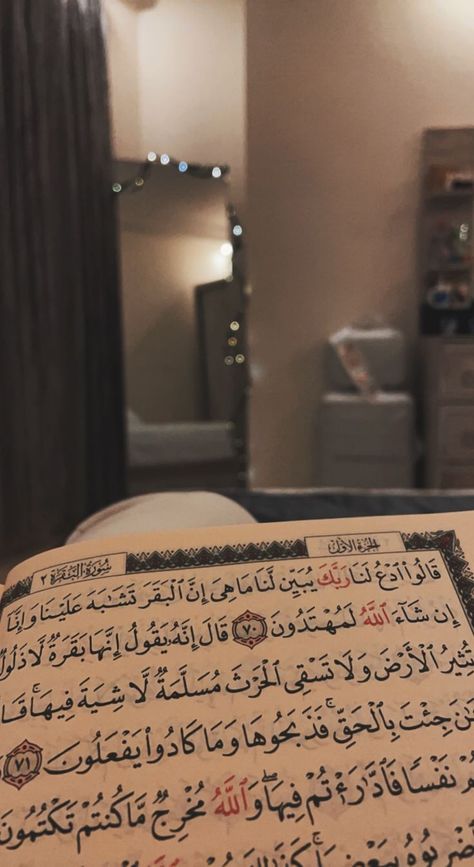 الجزء الأول
سُورَةُ البَقَرَةِ ٢
قَالُوا۟ ٱدۡعُ لَنَا رَبَّكَ يُبَيِّن لَّنَا مَا هِيَ إِنَّ ٱلۡبَقَرَ تَشَٰبَهَ عَلَيۡنَا وَإِنَّآ
إِن شَآءَ ٱللَّهُ لَمُهۡتَدُونَ ٧٠ قَالَ إِنَّهُۥ يَقُولُ إِنَّهَا بَقَرَةٞ لَّا ذَلُولٞ
تُثِيرُ ٱلۡأَرۡضَ وَلَا تَسۡقِي ٱلۡحَرۡثَ مُسَلَّمَةٞ لَّا شِيَةَ فِيهَاۚ
جِئۡتَ بِٱلۡحَقِّۚ فَذَبَحُوهَا وَمَا كَادُوا۟ يَفۡعَلُونَ ٧١
نَفۡسٗا فَٱدَّٰرَٰٔتُمۡ فِيهَاۖ وَٱللَّهُ مُخۡرِجٞ مَّا كُنتُمۡ تَكۡتُمُونَ